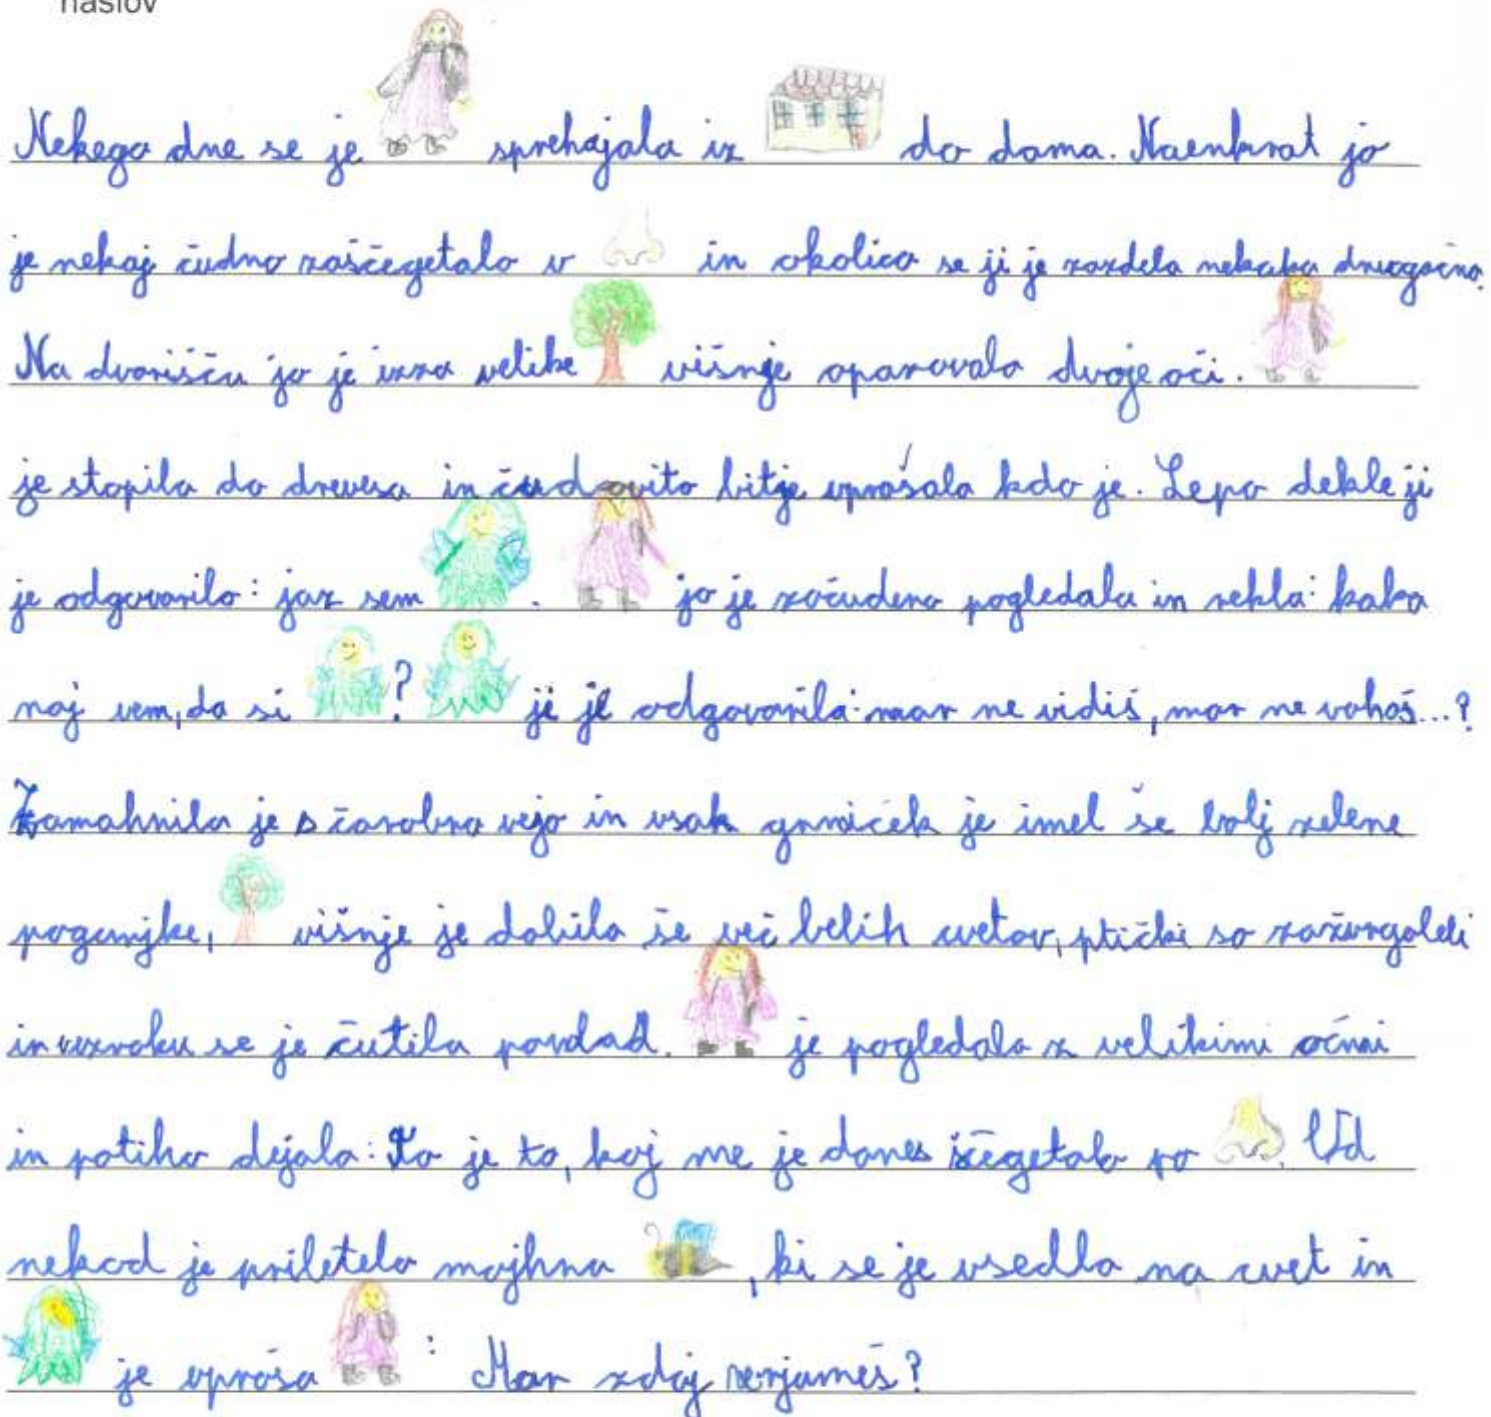 naslov
Nekega dne se je sprehajala iz do doma. Naenkrat jo
je nekaj čudno zaščegetalo v in okolica se ji je zazdela nekaka drugačna.
Na dvorišču jo je izza velike višnje opazovalo dvoje oči.
je stopila do drevesa in čudovito bitje vprašala kdo je. Lepo dekle ji
je odgovorilo: jaz sem . jo je začudeno pogledala in rekla: kako
naj vem, da si ? ji je odgovorila: mar ne vidiš, mar ne vohaš...?
Zamahnila je s čarobno vejo in vsak grmiček je imel še bolj zelene
poganjke, višnje je dobilo še več belih cvetov, ptički so zažvrgoleli
in vzraku se je čutila pomlad. je pogledala z velikimi očmi
in potiho dejala: To je to, kaj me je danes ščegetalo po . Od
nekod je priletela majhna , ki se je usedla na cvet in
je vpraša : Mar zdaj verjameš?